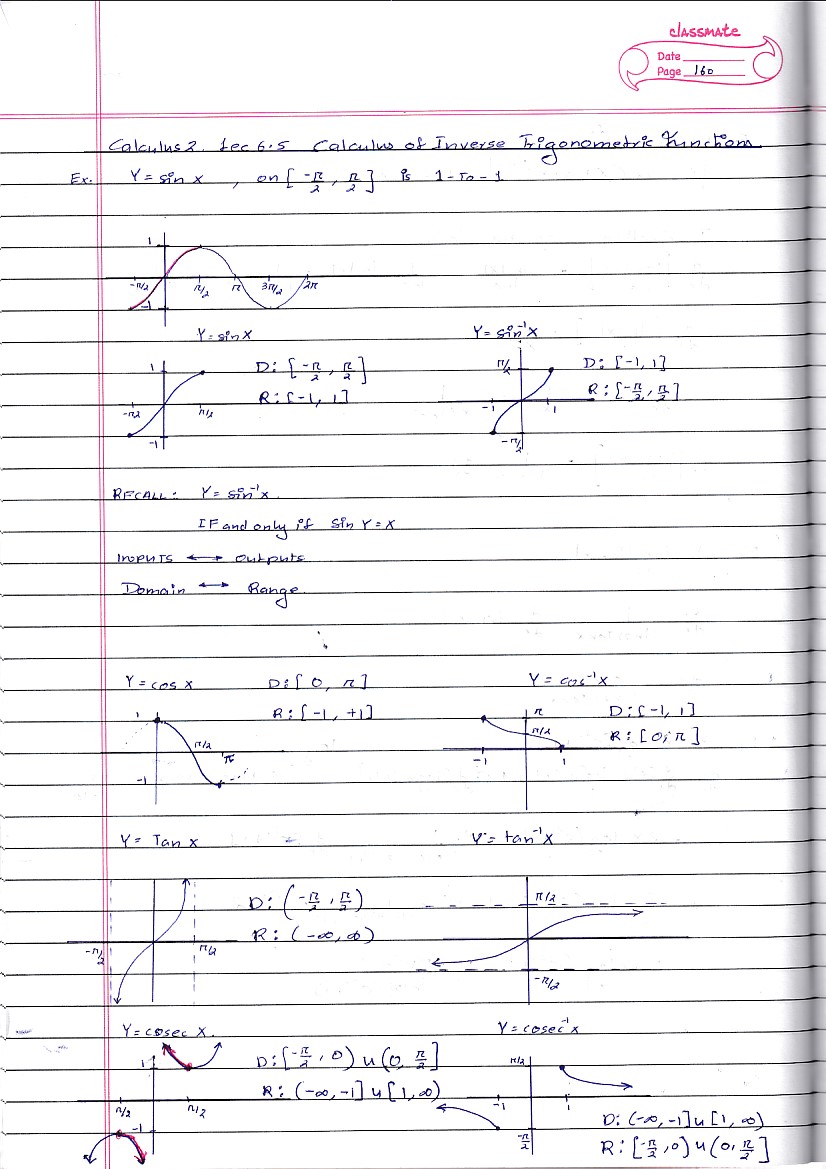 classmate
Date
Page 160
Calculus 2. Lec 6.5 Calculus of Inverse Trigonometric Functions
Ex. Y = sin x , on [-π/2, π/2] is 1-To-1
1
-π/2 π/2 π 3π/2 2π
-1
Y = sin x
D: [-π/2, π/2]
R: [-1, 1]
1
-π/2 π/2
-1
Y = sin⁻¹x
D: [-1, 1]
R: [-π/2, π/2]
π/2
-1 1
-π/2
RECALL: Y = sin⁻¹x.
IF and only if Sin Y = x
INPUTS ↔ outputs
Domain ↔ Range.
Y = cos x D: [0, π]
R: [-1, +1]
1
π/2 π
-1
Y = cos⁻¹x
D: [-1, 1]
R: [0, π]
π
π/2
-1 1
Y = Tan x
D: (-π/2, π/2)
R: (-∞, ∞)
-π/2 π/2
Y = tan⁻¹x
π/2
-π/2
Y = cosec x.
D: [-π/2, 0) u (0, π/2]
R: (-∞, -1] u [1, ∞)
1
π/2 π/2
-1
Y = cosec⁻¹x
π/2
-1 1
-π/2
D: (-∞, -1] u [1, ∞)
R: [-π/2, 0) u (0, π/2]